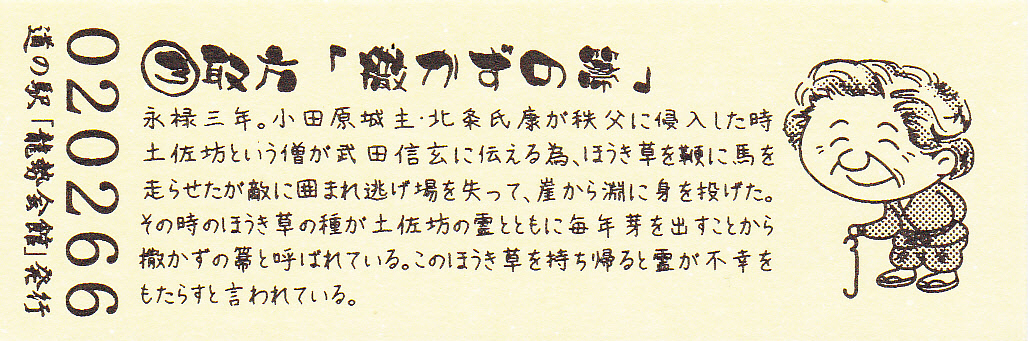 取方「撒かずの箒」
永禄三年。小田原城主・北条氏康が秩父に侵入した時
土佐坊という僧が武田信玄に伝える為、ほうき草を鞭に馬を
走らせたが敵に囲まれ逃げ場を失って、崖から淵に身を投げた。
その時のほうき草の種が土佐坊の霊とともに毎年芽を出すことから
撒かずの箒と呼ばれている。このほうき草を持ち帰ると霊が不幸を
もたらすと言われている。
020266
道の駅「龍勢会館」発行